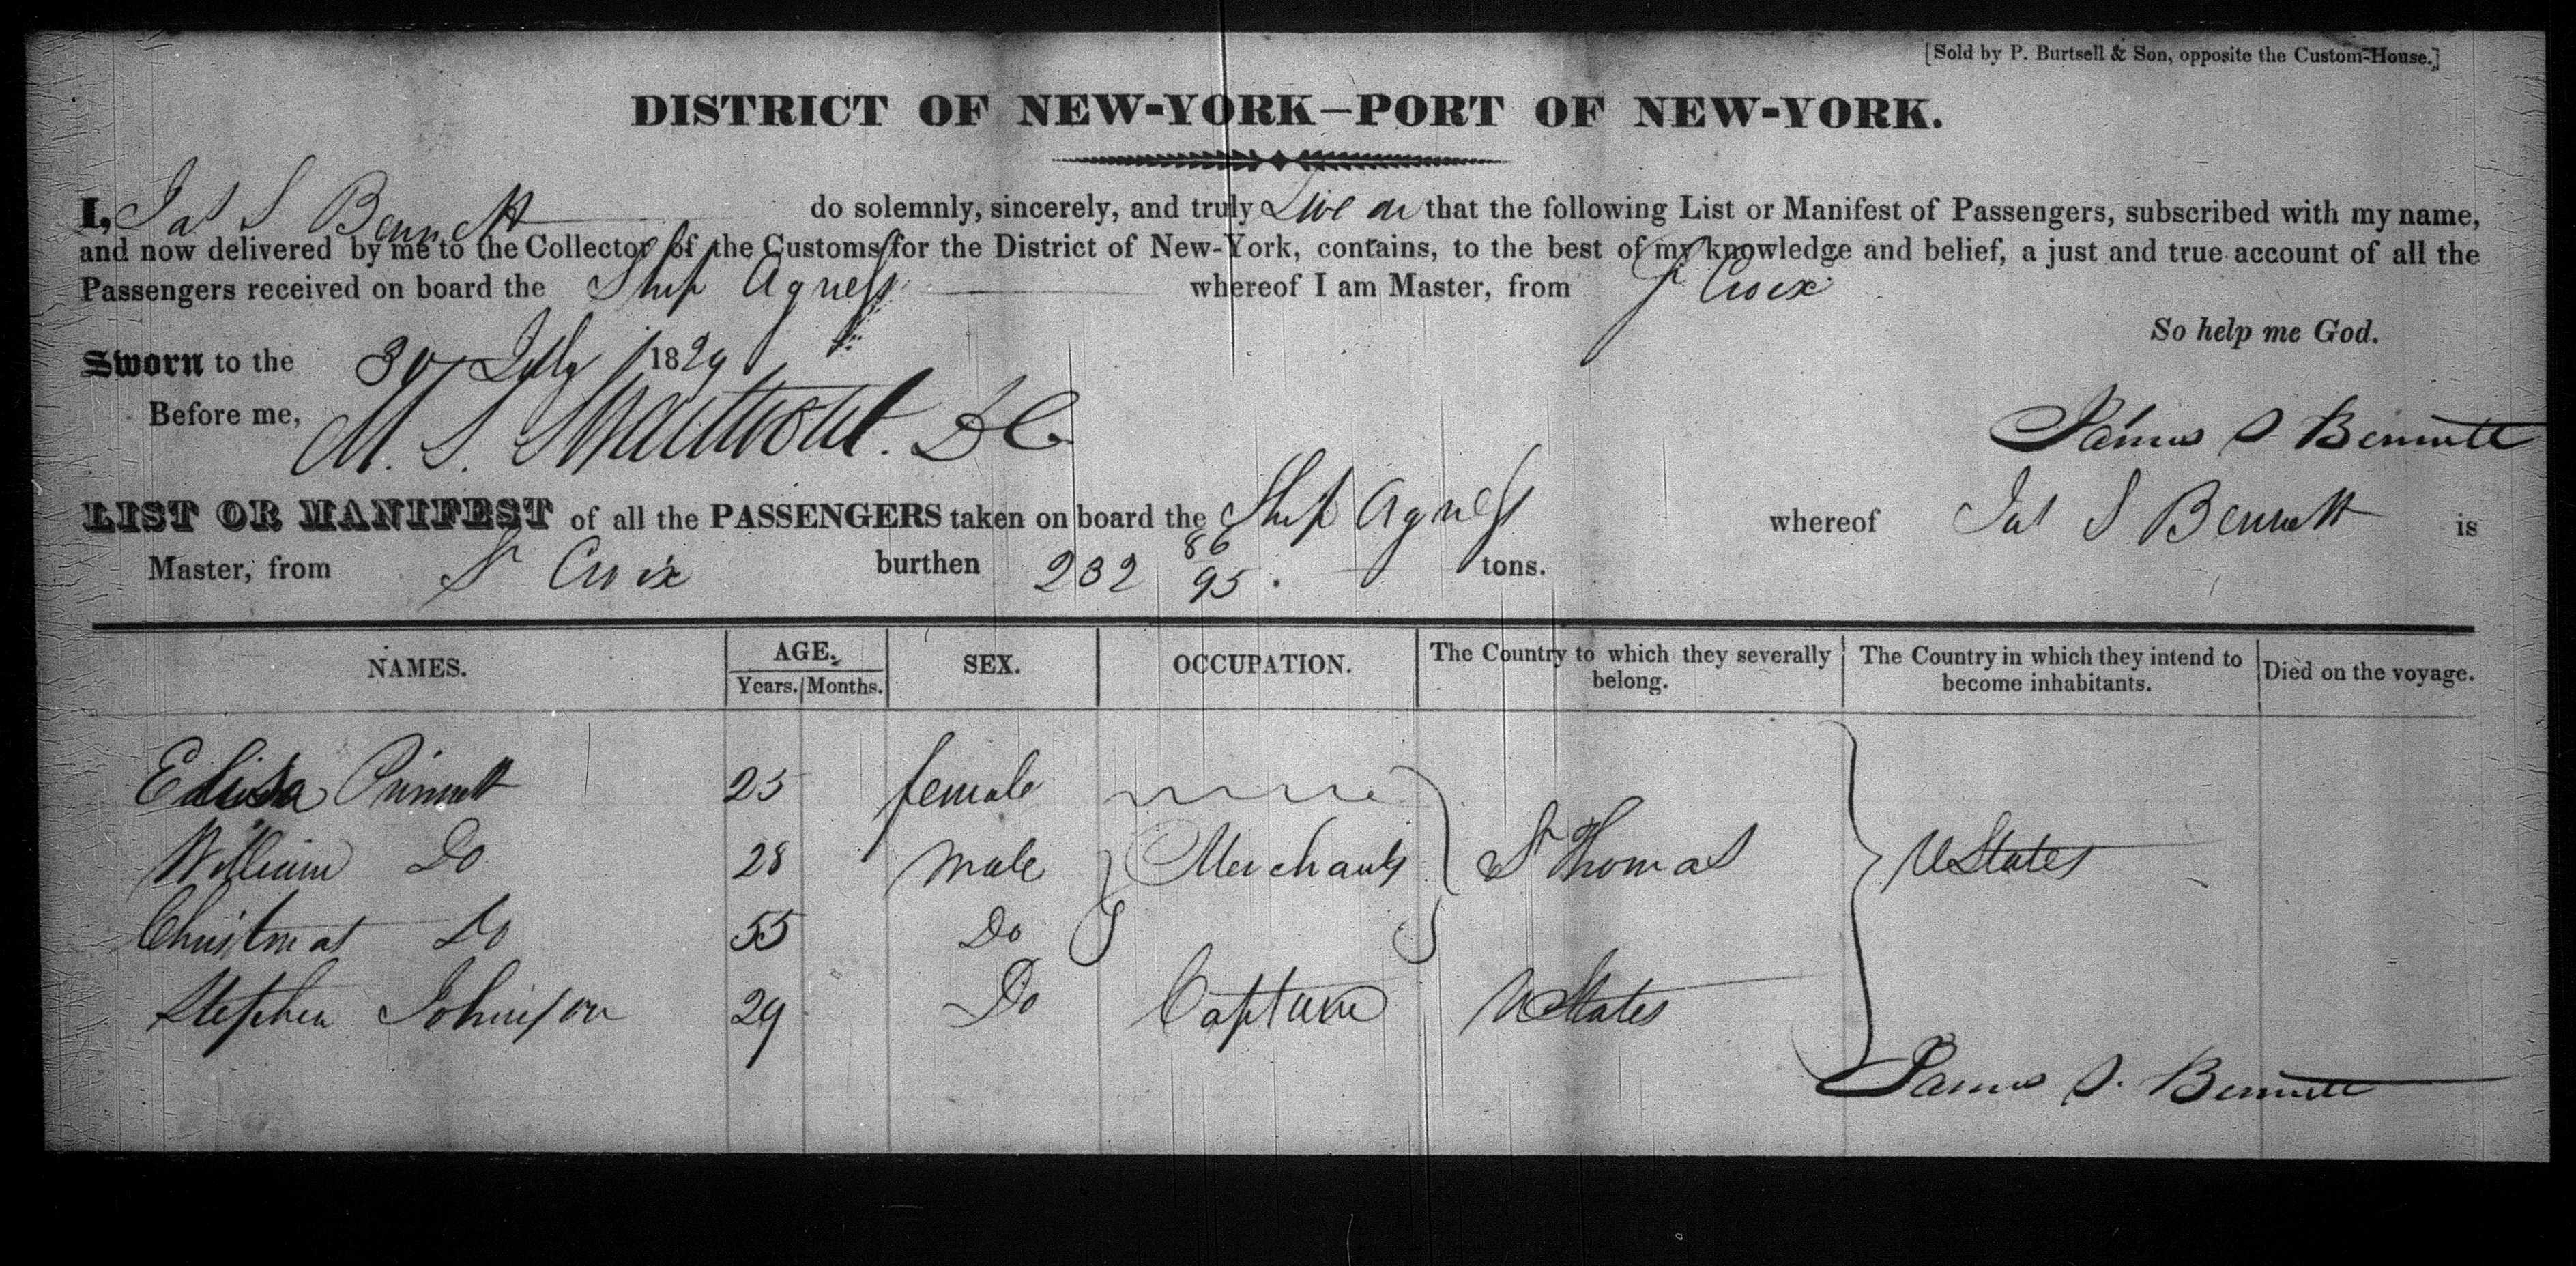 [Sold by P. Burtsell & Son, opposite the Custom-House.]
DISTRICT OF NEW-YORK—PORT OF NEW-YORK.
I, Jas S Bennett do solemnly, sincerely, and truly Swear that the following List or Manifest of Passengers, subscribed with my name,
and now delivered by me to the Collector of the Customs for the District of New-York, contains, to the best of my knowledge and belief, a just and true account of all the
Passengers received on board the Ship Agness whereof I am Master, from St Croix
So help me God.
Sworn to the 30 July 1829
Before me, M. S. Swartwout. DC
James S Bennett
LIST OR MANIFEST of all the PASSENGERS taken on board the Ship Agness whereof Jas S Bennett is
Master, from St Croix burthen 232 86/95 tons.
NAMES. AGE. Years. Months. SEX. OCCUPATION. The Country to which they severally belong. The Country in which they intend to become inhabitants. Died on the voyage.
Eliza 25 female
William Do 28 male Merchants St Thomas U States
Christmas Do 55 Do
Stephen Johnson 29 Do Captain U States
James S. Bennett